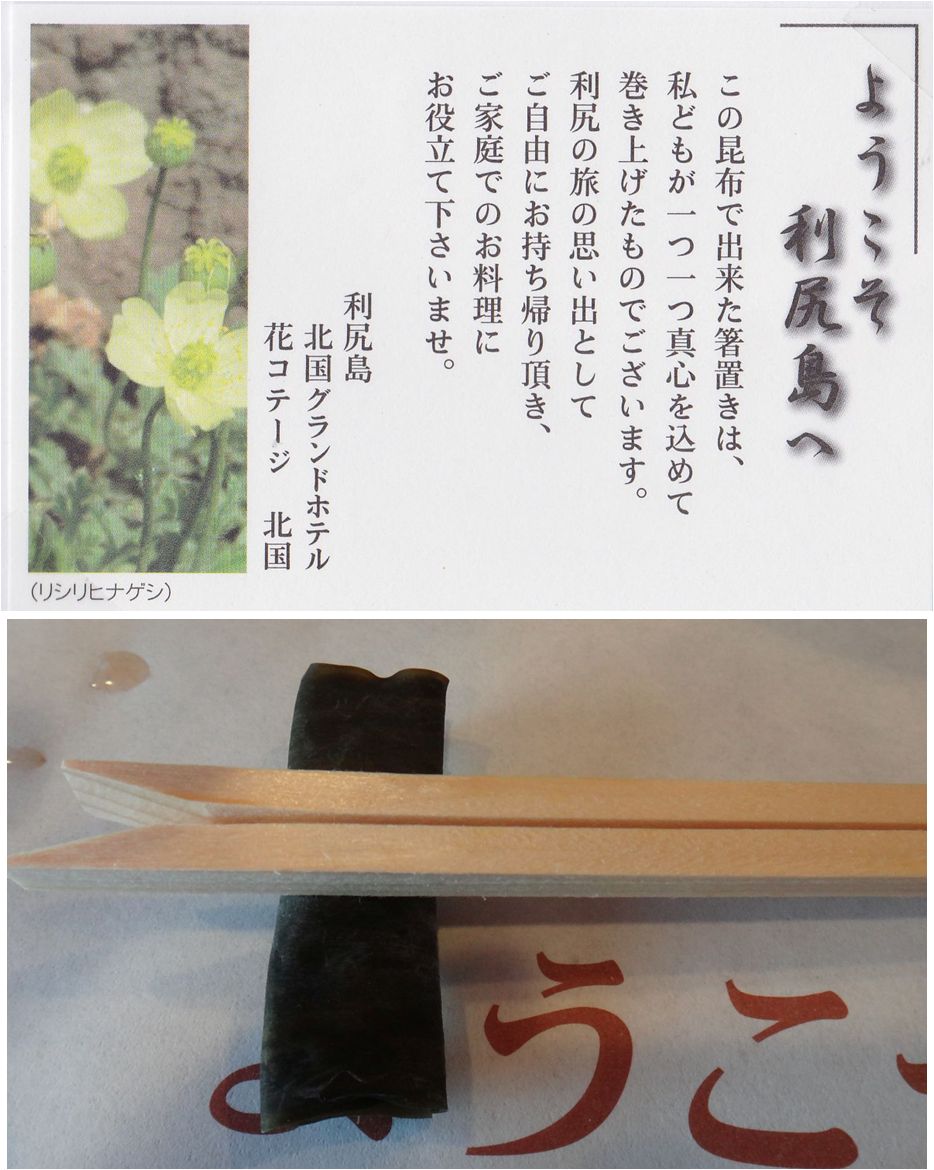 ようこそ
利尻島へ
この昆布で出来た箸置きは、
私どもが一つ一つ真心を込めて
巻き上げたものでございます。
利尻の旅の思い出として
ご自由にお持ち帰り頂き、
ご家庭でのお料理に
お役立て下さいませ。
利尻島
北国グランドホテル
花コテージ 北国
(リシリヒナゲシ)
ようこ